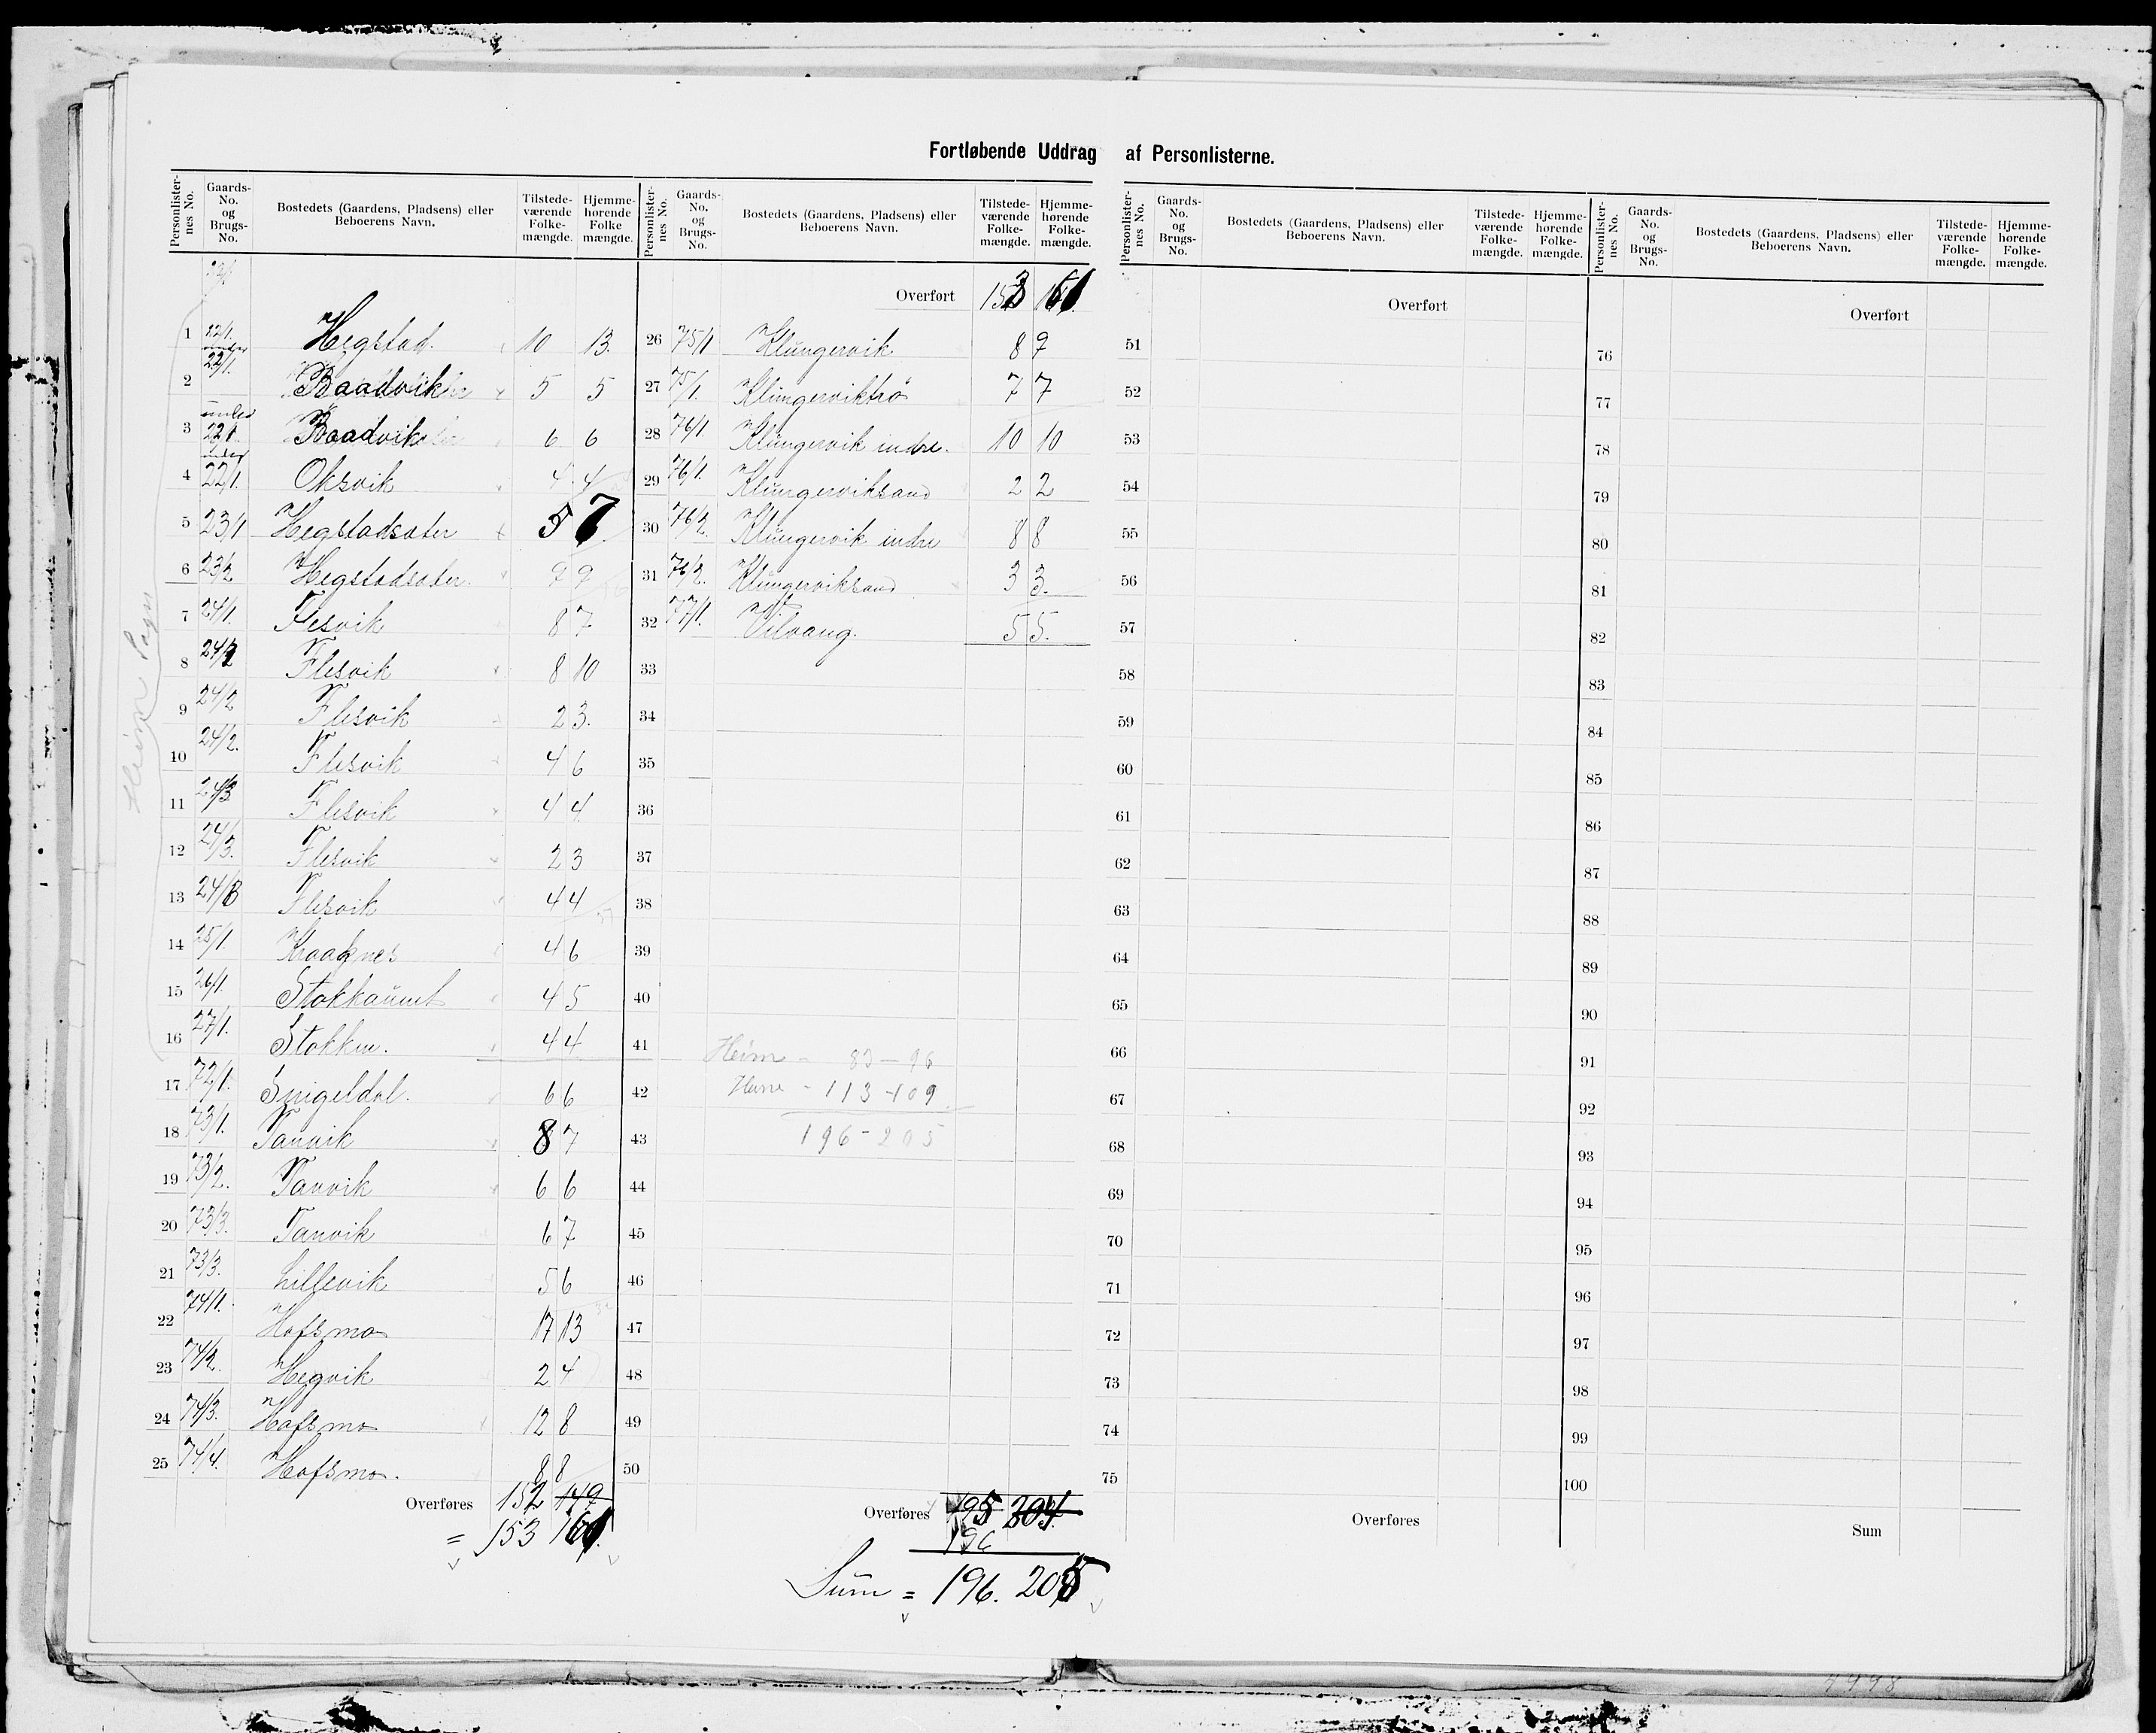 Fortløbende Uddrag af Personlisterne.
Personlister-nes No. | Gaards-No. og Brugs-No. | Bostedets (Gaardens, Pladsens) eller Beboerens Navn. | Tilstede-værende Folke-mængde. | Hjemme-hørende Folke mængde.
1 22/1. Hegstad. 10 13.
2 under 22/1. Baadvik 5 5
3 under 22/1. Baadvik 6 6
4 under 22/1. Oksvik 4 4
5 23/1 Hegstadsæter 5 7
6 23/2 Hegstadsæter. 9 9
7 24/1. Flesvik 8 7
8 24/2 Flesvik 8 10
9 24/2 Flesvik 2 3.
10 24/2. Flesvik 4 6
11 24/3 Flesvik 4 4.
12 24/3. Flesvik 2 3
13 24/3 Flesvik 4 4
14 25/1. Kraaknes 4 6
15 26/1. Stokkaunet 4 5
16 27/1. Stokken. 4 4
17 72/1. Snigeldal. 6 6
18 73/1. Tanvik 8 7
19 73/2. Tanvik 6 6
20 73/3. Tanvik 6 7
21 73/3. Lillevik 5 6
22 74/1. Hafsmo 17 13
23 74/2. Hegvik 2 4
24 74/3. Hafsmo 12 8
25 74/4. Hafsmo. 8 8
Overføres 152 149
= 153 161.
Heim Sogn
Personlister-nes No. | Gaards-No. og Brugs-No. | Bostedets (Gaardens, Pladsens) eller Beboerens Navn. | Tilstede-værende Folke-mængde. | Hjemme-hørende Folke-mængde.
Overført 153 161.
26 75/1 Klungervik 8 9
27 75/1. Klungerviktrø 7 7
28 76/1. Klungervik indre. 10 10
29 76/1. Klungerviksand 2 2
30 76/2. Klungervik indre 8 8
31 76/2. Klungerviksand 3 3.
32 77/1. Vilvang. 5 5.
33
34
35
36
37
38
39
40
41
42
43
44
45
46
47
48
49
50
Heim - 83 - 96
Hevne - 113 - 109
196 - 205
Overføres 195 204.
196
Sum = 196. 205
Personlister-nes No. | Gaards-No. og Brugs-No. | Bostedets (Gaardens, Pladsens) eller Beboerens Navn. | Tilstede-værende Folke-mængde. | Hjemme-hørende Folke-mængde.
Overført
51
52
53
54
55
56
57
58
59
60
61
62
63
64
65
66
67
68
69
70
71
72
73
74
75
Overføres
Personlister-nes No. | Gaards-No. og Brugs-No. | Bostedets (Gaardens, Pladsens) eller Beboerens Navn. | Tilstede-værende Folke-mængde. | Hjemme-hørende Folke-mængde.
Overført
76
77
78
79
80
81
82
83
84
85
86
87
88
89
90
91
92
93
94
95
96
97
98
99
100
Sum